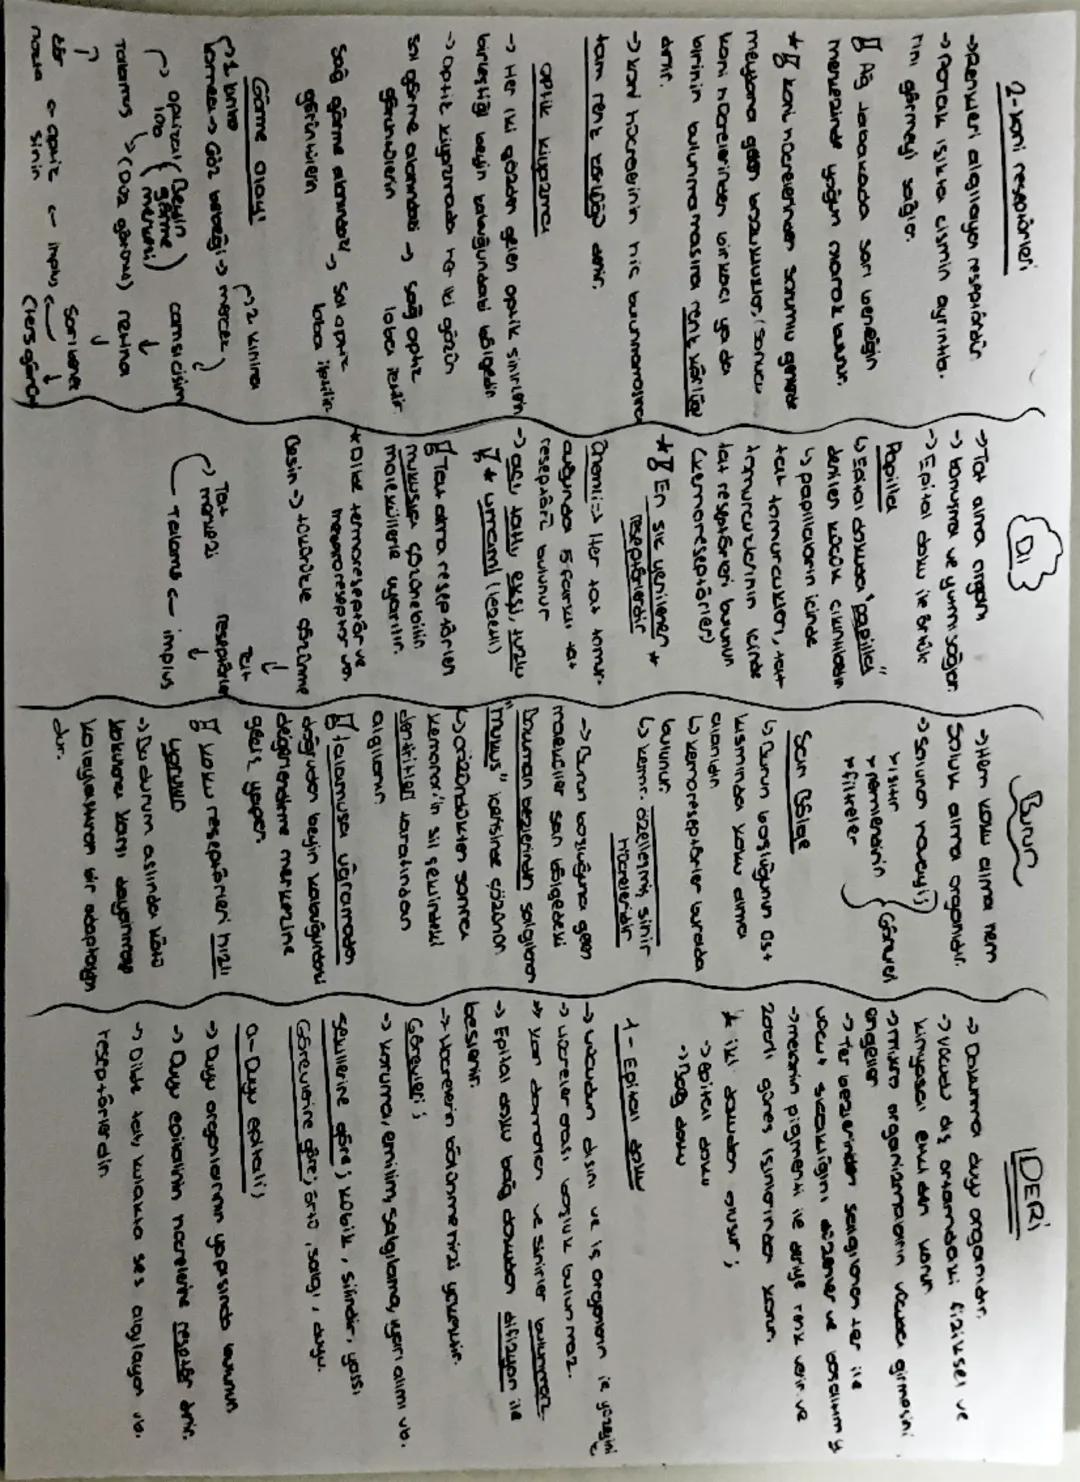 2-Koni reseptörleri
→Renkleri algılayan reseptördür.
→Parlak ışıkta cismin ayrıntıla-
rını görmeyi sağlar.
Ağ tabakada sarı beneğin
merkezinde yoğun olarak bulunur.
* koni hücrelerinden sorumlu genlerde
meydana gelen bozukluklar, sonucu
koni hücrelerinden birkaçı ya da
birinin bulunmamasına renk körlüğü
denir.
→ Koni hücrelerinin hiç bulunmamasına
tam renk körlüğü denir.
Optik kiyazma
→ Her iki gözden gelen optik sinirlerin
birleştiği beyin kabuğundaki bölgedir.
→ Optik kiyazmada her iki gözün
sol görme alanındaki → sağ optik
görüntülerin loba iletilir.
Sağ görme alanındaki → Sol optik
görüntülerin loba iletilir.
Görme olayı
1. kırılma 2. kırılma
kornea → Göz bebeği → mercek
oksipital (Beyin görme merkezi) camsı cisim
lob
Talamus → (Düz görme) retina
Sarı benek
optik sinir ← impuls ← (ters görüntü)
Dil
→Tat alma organı
→ Konuşma ve yutmayı sağlar.
→ Epitel doku ile örtülü
Papilla
↳ Epitel dokuda "papilla"
denilen küçük çıkıntılardır
↳ papillaların içinde
tat tomurcukları, tat
tomurcuklarının içinde
tat reseptörleri bulunur
(kemoreseptörler)
* En sık yenilenen *
reseptörlerdir
Önemli => Her tat tomur-
cuğunda 5 farklı tat
reseptörü bulunur
→ acı, tatlı, ekşi, tuzlu
* umami (lezzetli)
Tat alma reseptörleri
mukusta çözünebilir
moleküllerle uyarılır.
* Dilde termoreseptör ve
mekanoreseptör var
Besin → tükürükte çözünme
Tat
Tat reseptörler
merkezi
Talamus ← impuls
Burun
→Hem koku alma hem
Soluk alma organıdır.
→ Solunan havayı;
* ısıtır
* nemlendirir } Görevleri
* filtreler
Sarı Bölge
↳ Burun boşluğunun üst
kısmında koku alma
alanıdır
↳ kemoreseptörler burada
bulunur.
↳ kemr. özelleşmiş sinir
hücreleridir
→ Burun boşluğuna gelen
moleküller sarı bölgedeki
Bowman bezlerinden salgılanan
"mukus" içerisinde çözünür
↳ çözündükten sonra
kemorör.in sil şeklindeki
dentritleri tarafından
algılanır
talamusa uğramadan
doğrudan beyin kabuğundaki
değerlendirme merkezine
geçiş yapar.
koku reseptörleri hızlı
yorulur
→ Bu durum aslında kötü
kokulara karşı dayanmayı
kolaylaştıran bir adaptasyon
dur.
DERİ
→ Dokunma duyu organıdır.
→ Vücudu dış ortamdaki fiziksel ve
kimyasal etkilerden korur
→ mikro organizmaların vücuda girmesini
engeller
→ Ter bezlerinden salgılanan ter ile
vücut sıcaklığını düzenler ve boşaltım y
→ melanin pigmenti ile deriye renk verir ve
zararlı güneş ışınlarından korur.
* iki dokudan oluşur;
→ epitel doku
→ Bağ doku
1 - Epitel doku
→ Vücudun dışını ve iç organların iç yüzeyini
→ Hücreler arası boşluk bulunmaz.
* kan damarları ve sinirler bulunmaz
→ Epitel doku bağ dokudan difüzyon ile
beslenir.
→ Hücrelerin bölünme hızı yüksektir.
Görevleri;
→ koruma, emilim, salgılama, uyarı alımı vb.
Şekillerine göre; kübik, silindir, yassı
Görevlerine göre; örtü, salgı, duyu.
a-Duyu epiteli;
→ Duyu organlarının yapısında bulunur
→ Duyu epitelinin hücrelerine reseptör denir.
→ Dilde tat, kulakta ses algılayan vb.
reseptörlerdir